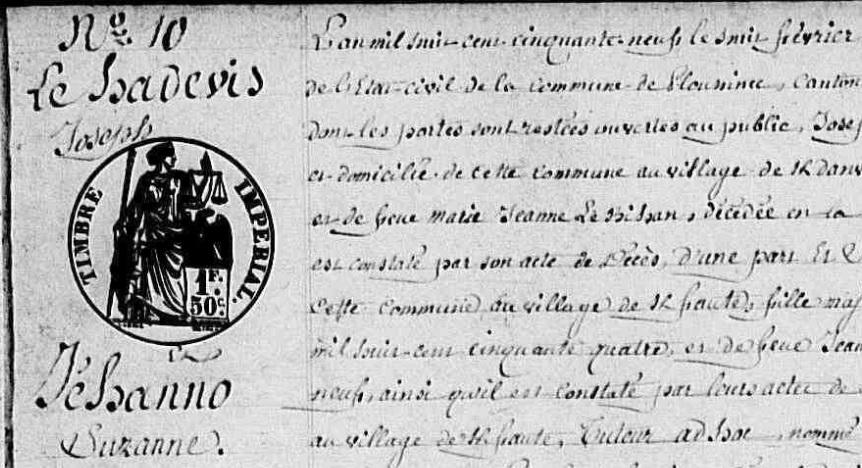 Nº 10
Le hadevis
Joseph
TIMBRE IMPERIAL.
1 F.
50 c.
Et
Jéhanno
Suzanne.
L'an mil huit cent cinquante neuf le huit février
de l'Etat civil de la Commune de Ploumine, Canton
dont les portes sont restées ouvertes au public, Josep
et domicilié de cette commune au village de
et de feue marie Jeanne Le, décédée en la
est constaté par son acte de Décès, d'une part Et
Cette Commune au village de, fille maj
mil huit cent cinquante quatre, et de feue Jean
neuf, ainsi qu'il est constaté par leurs actes de
au village de, Tuteur ad hoc, nommé